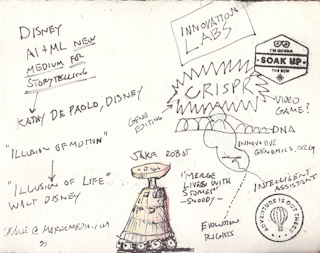 DISNEY
AI + ML NEW
MEDIUM FOR
STORYTELLING
KATHY DE PAOLO, DISNEY
"ILLUSION OF MOTION"
"ILLUSION OF LIFE"
WALT DISNEY
INNOVATION
LABS
I'M GONNA
SOAK UP
THE SUN
CRISPR
GENE
EDITING
VIDEO
GAME?
DNA
INNOVATIVE
GENOMICS.ORG
ROBOT
"MERGE
LIVES WITH
STORIES"
INTELLIGENT
ASSISTANT
EVOLUTION
RIGHTS
ADVENTURE IS OUT THERE!